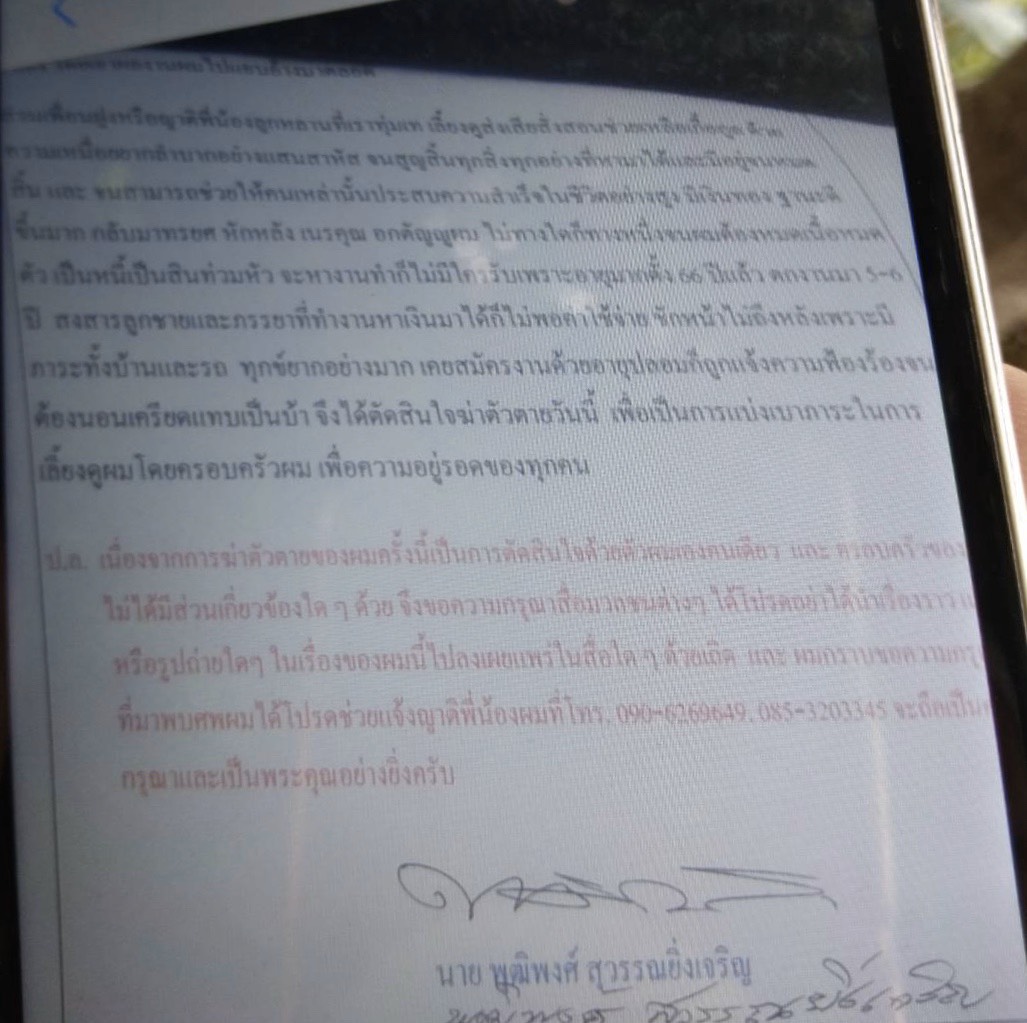 ความเหนื่อยยากลำบากอย่างแสนสาหัส จนสูญสิ้นทุกสิ่งทุกอย่างที่หามาได้และมีอยู่จนหมด
สิ้น และ จนสามารถช่วยให้คนเหล่านั้นประสบความสำเร็จในชีวิตอย่างสูง มีเงินทอง ฐานะดี
ขึ้นมาก กลับมาทรยศ หักหลัง เนรคุณ อกตัญญูผม ไม่ทางใดก็ทางหนึ่งจนผมต้องหมดเนื้อหมด
ตัว เป็นหนี้เป็นสินท่วมหัว จะหางานทำก็ไม่มีใครรับเพราะอายุมากตั้ง 66 ปีแล้ว ตกงานมา 5-6
ปี สงสารลูกชายและภรรยาที่ทำงานหาเงินมาได้ก็ไม่พอค่าใช้จ่าย ชักหน้าไม่ถึงหลังเพราะมี
ภาระทั้งบ้านและรถ ทุกข์ยากอย่างมาก เคยสมัครงานด้วยอายุปลอมก็ถูกแจ้งความฟ้องร้องจน
ต้องนอนเครียดแทบเป็นบ้า จึงได้ตัดสินใจฆ่าตัวตายวันนี้ เพื่อเป็นการแบ่งเบาภาระในการ
เลี้ยงดูผมโดยครอบครัวผม เพื่อความอยู่รอดของทุกคน
ป.ล. เนื่องจากการฆ่าตัวตายของผมครั้งนี้เป็นการตัดสินใจด้วยตัวผมเองคนเดียว และ ครอบครัวของ
ไม่ได้มีส่วนเกี่ยวข้องใด ๆ ด้วย จึงขอความกรุณาสื่อมวลชนต่างๆ ได้โปรดอย่าได้นำเรื่องราว
หรือรูปถ่ายใดๆ ในเรื่องของผมนี้ไปลงเผยแพร่ในสื่อใด ๆ ด้วยเถิด และ ผมกราบขอความ
ที่มาพบศพผมได้โปรดช่วยแจ้งญาติพี่น้องผมที่โทร. 090-6269649, 085-3203345 จะถือเป็น
กรุณาและเป็นพระคุณอย่างยิ่งครับ
นาย พุฒิพงศ์ สุวรรณยิ่งเจริญ